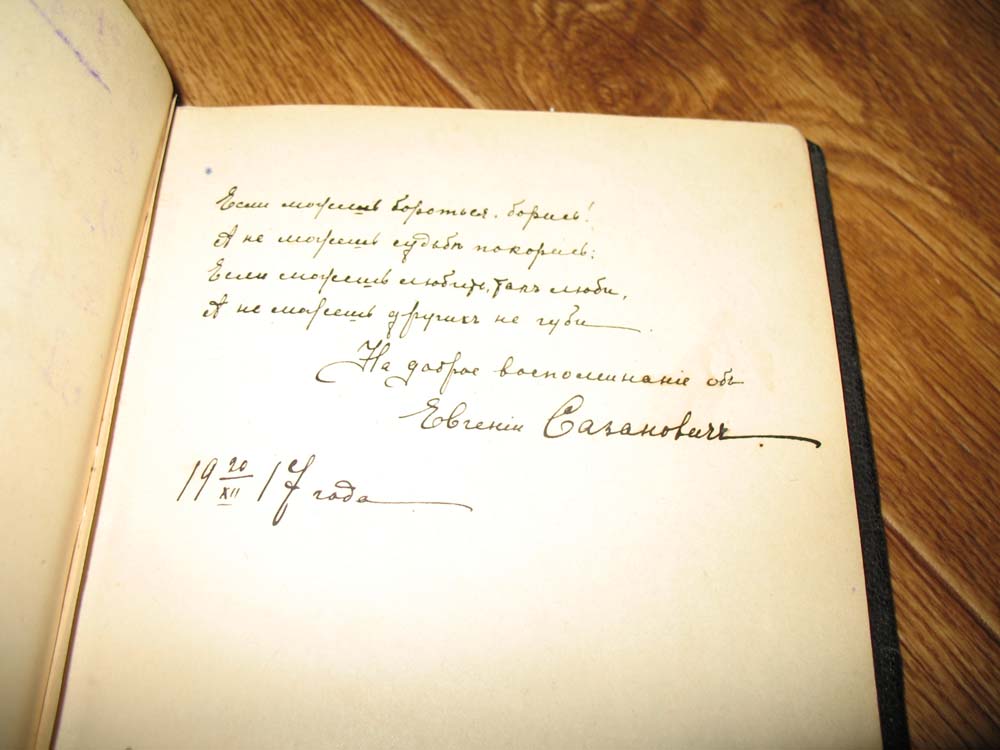 Если можешь бороться, борись!
А не можешь судьбѣ покорись;
Если можешь любить, такъ люби,
А не можешь другихъ не губи
На доброе воспоминаніе объ
Евгеніи Сазановичъ
19 20/XII 17 года